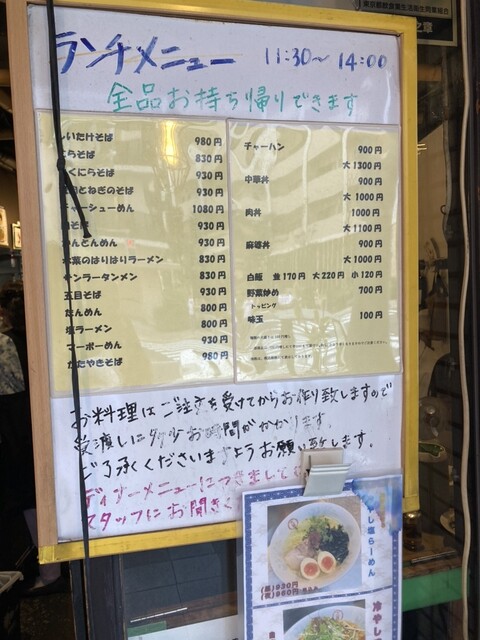 ランチメニュー 11:30〜14:00
全品お持ち帰りできます
しいたけそば 980円
そば 830円
くにらそば 930円
とねぎのそば 930円
チャーシューめん 1080円
そば 930円
わんたんめん 930円
水菜のはりはりラーメン 830円
サンラータンメン 830円
五目そば 930円
たんめん 800円
塩ラーメン 800円
マーボーめん 930円
かたやきそば 980円
チャーハン 900円
大 1300円
中華丼 900円
大 1000円
肉丼 1000円
大 1100円
麻婆丼 900円
大 1000円
白飯 並170円 大220円 小120円
野菜炒め 700円
トッピング
味玉 100円
お料理はご注文を受けてからお作り致しますので
受渡しに多少お時間がかかります。
ご了承くださいますようお願い致します。
ディナーメニューにつきまして
スタッフにお聞きく
し塩らーめん
冷やし